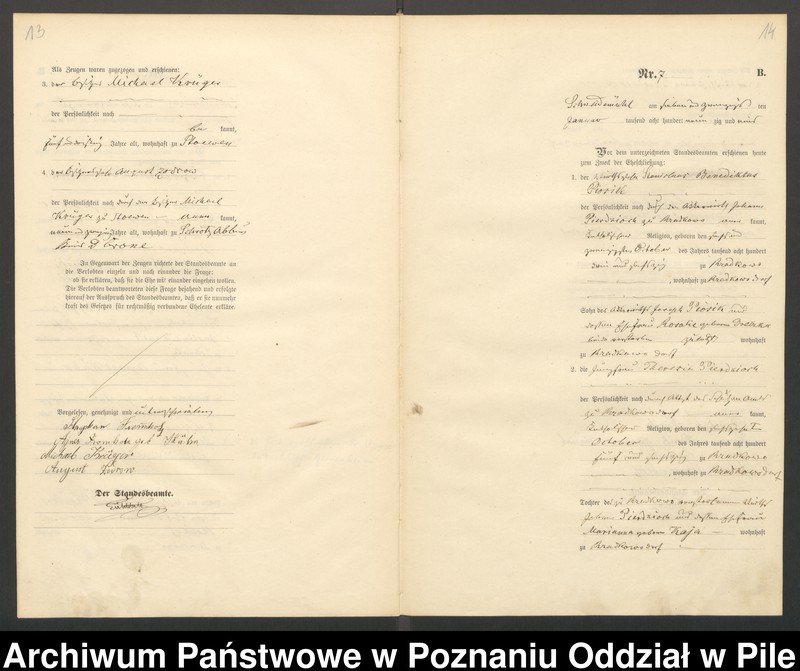 13
Als Zeugen waren zugezogen und erschienen:
3. der Besitzer Michael Krüger
der Persönlichkeit nach
be kannt,
fünf und dreißig Jahre alt, wohnhaft zu Stoewen
4. der August
der Persönlichkeit nach durch den Besitzer Michael
Krüger zu Stoewen aner kannt,
neun und zwanzig Jahre alt, wohnhaft zu Schrotz Abbau
Kreis D Crone
In Gegenwart der Zeugen richtete der Standesbeamte an
die Verlobten einzeln und nach einander die Frage:
ob sie erklären, daß sie die Ehe mit einander eingehen wollen.
Die Verlobten beantworteten diese Frage bejahend und erfolgte
hierauf der Ausspruch des Standesbeamten, daß er sie nunmehr
kraft des Gesetzes für rechtmäßig verbundene Eheleute erkläre.
Vorgelesen, genehmigt und unterschrieben
Stephan
Agnes geb
Michael Krüger
August
Der Standesbeamte.
14
Nr. 7
B.
Schneidemühl am sieben und zwanzigsten
Januar tausend acht hundert neun zig und eins
Vor dem unterzeichneten Standesbeamten erschienen heute
zum Zweck der Eheschließung:
1. der Stanislaus Benediktus
Piosik
der Persönlichkeit nach durch den Johann
Pierdzioch zu Kradkowo aner kannt,
katholischer Religion, geboren den
zwanzigsten Oktober des Jahres tausend acht hundert
drei und sechszig zu Kradkowo
, wohnhaft zu Kradkowodorf
Sohn des Joseph Piosik und
dessen Ehefrau Rosalie geborene
beide verstorben zuletzt wohnhaft
zu Kradkowo dorf
2. die Jungfrau Theresia Pierdzioch
der Persönlichkeit nach durch Attest des
zu Kradkowodorf aner kannt,
katholischer Religion, geboren den
October des Jahres tausend acht hundert
fünf und sechszig zu Kradkowo
, wohnhaft zu Kradkowodorf
Tochter des zu Kradkowo verstorbenen
Johann Pierdzioch und dessen Ehefrau
Marianna geborene Kaja wohnhaft
zu Kradkowodorf
Archiwum Państwowe w Poznaniu Oddział w Pile